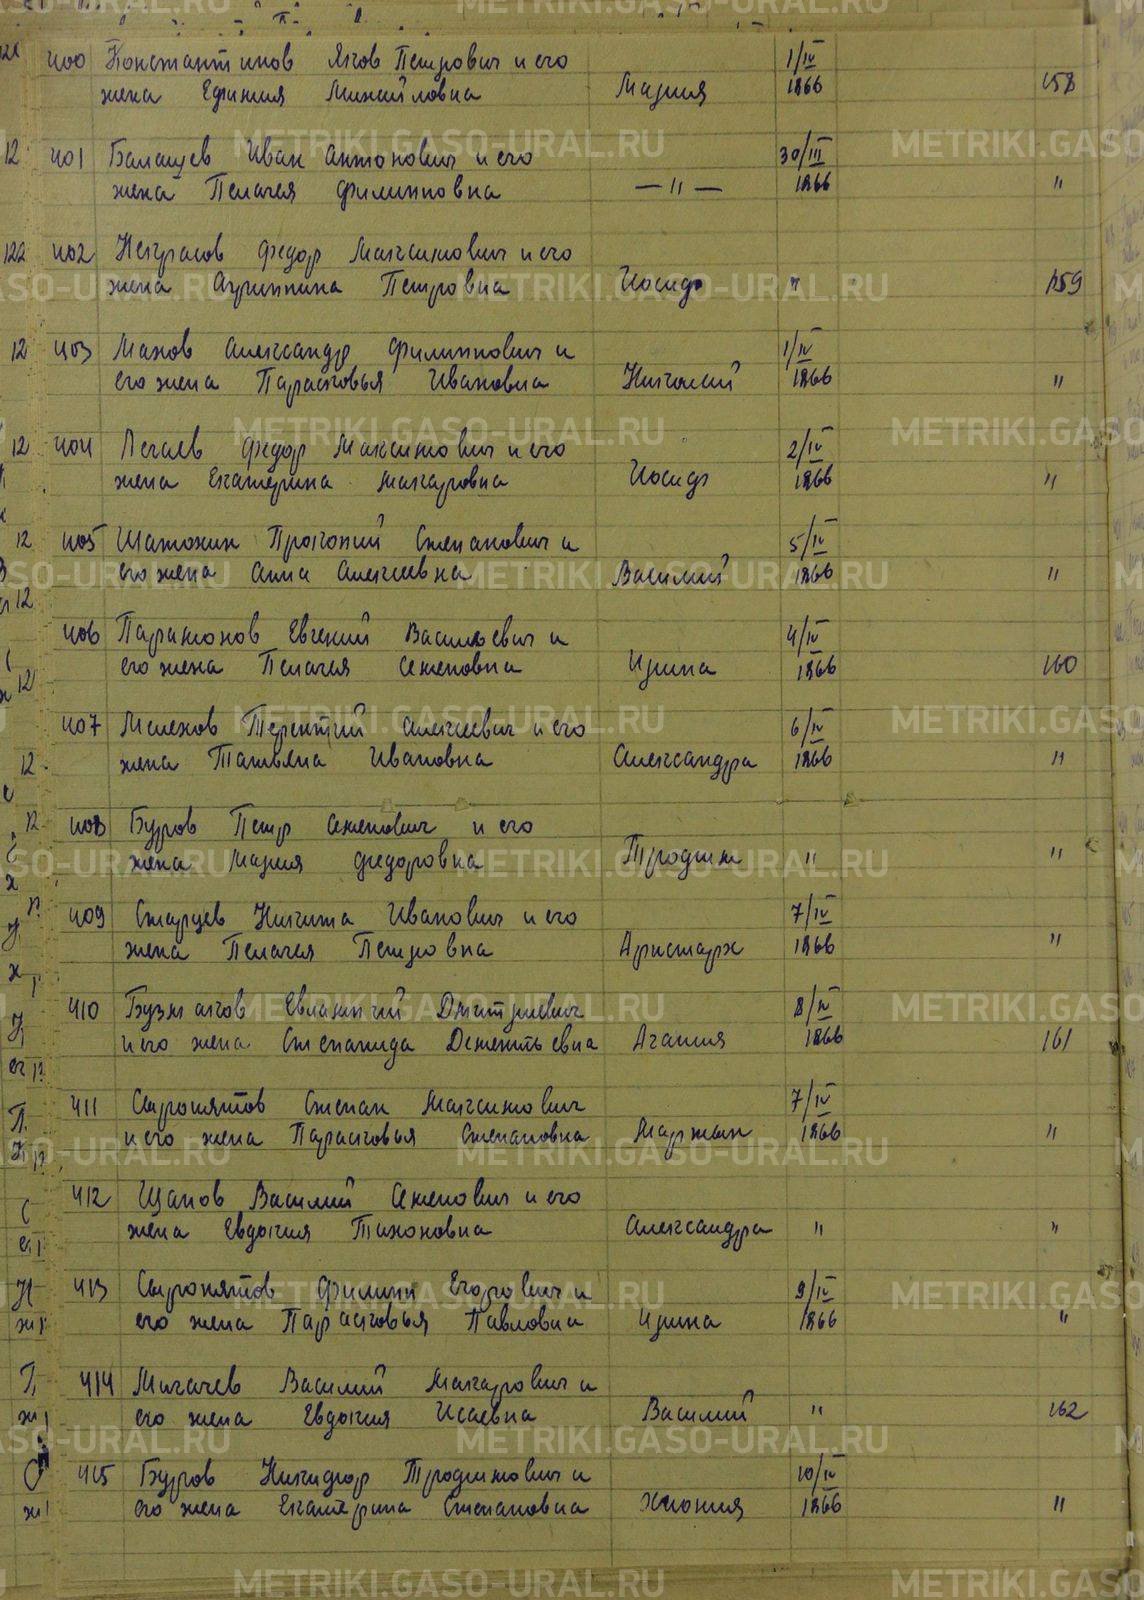 400 Константинов Яков Петрович и его
жена Ефимия Михайловна Мария 1/IV 1866 158
401 Балашев Иван Антонович и его
жена Пелагея Филипповна —"— 30/III 1866 "
402 Некрасов Федор Максимович и его
жена Агриппина Петровна Иосиф " 159
403 Махов Александр Филиппович и
его жена Парасковья Ивановна Николай 1/IV 1866 "
404 Легаев Федор Максимович и его
жена Екатерина Макаровна Иосиф 2/IV 1866 "
405 Шатохин Прокопий Степанович и
его жена Анна Алексеевна Василий 5/IV 1866 "
406 Парамонов Евгений Васильевич и
его жена Пелагея Семеновна Ирина 4/IV 1866 160
407 Мелехов Терентий Алексеевич и его
жена Татьяна Ивановна Александра 6/IV 1866 "
408 Буров Петр Семенович и его
жена Мария Федоровна Трофим " "
409 Старцев Никита Иванович и его
жена Пелагея Петровна Аристарх 7/IV 1866 "
410 Бузмаков Евлампий Дмитриевич
и его жена Степанида Дементьевна Агапия 8/IV 1866 161
411 Сыропятов Степан Максимович
и его жена Парасковья Степановна Мартын 7/IV 1866 "
412 Щапов Василий Семенович и его
жена Евдокия Тихоновна Александра " "
413 Сыропятов Филипп Егорович и
его жена Парасковья Павловна Ирина 9/IV 1866 "
414 Михачев Василий Макарович и
его жена Евдокия Исаевна Василий " 162
415 Буров Никифор Трофимович и
его жена Екатерина Степановна Хиония 10/IV 1866 "
METRIKI.GASO-URAL.RU